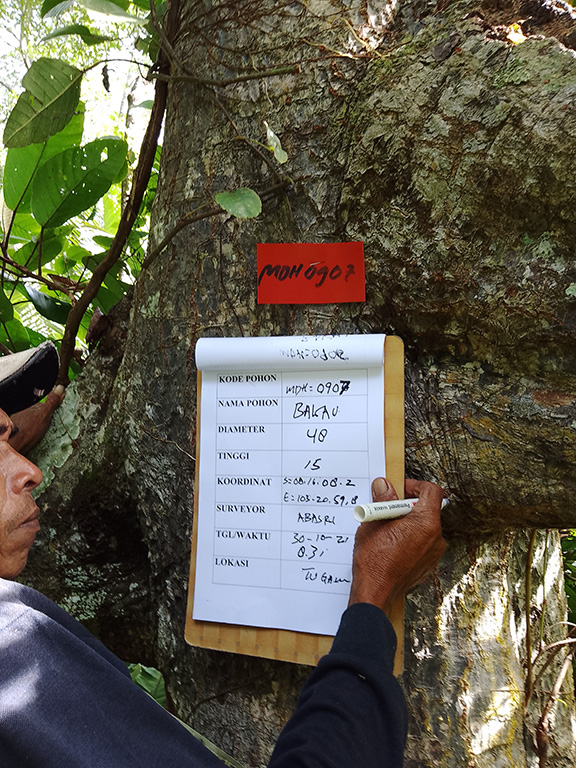 MDH 0907
KODE POHON MDH=0907
NAMA POHON BAKAU
DIAMETER 48
TINGGI 15
KOORDINAT S=08.16.08.2
E=103-20.59,8
SURVEYOR ABASRI
TGL/WAKTU 30-10-21
LOKASI
Permanent